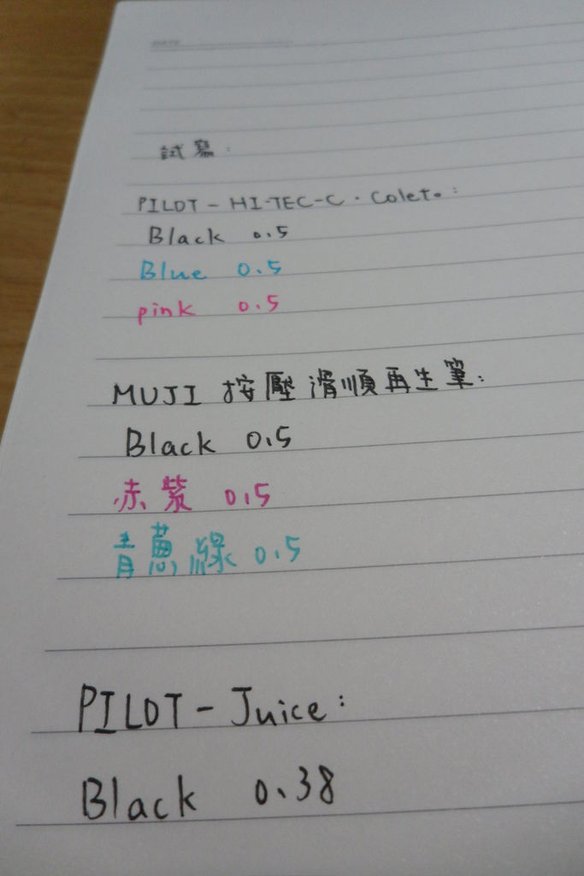 試寫:
PILOT - HI-TEC-C · Coleto:
Black 0.5
Blue 0.5
pink 0.5
MUJI 按壓滑順再生筆:
Black 0.5
赤紫 0.5
青蔥綠 0.5
PILOT - Juice:
Black 0.38